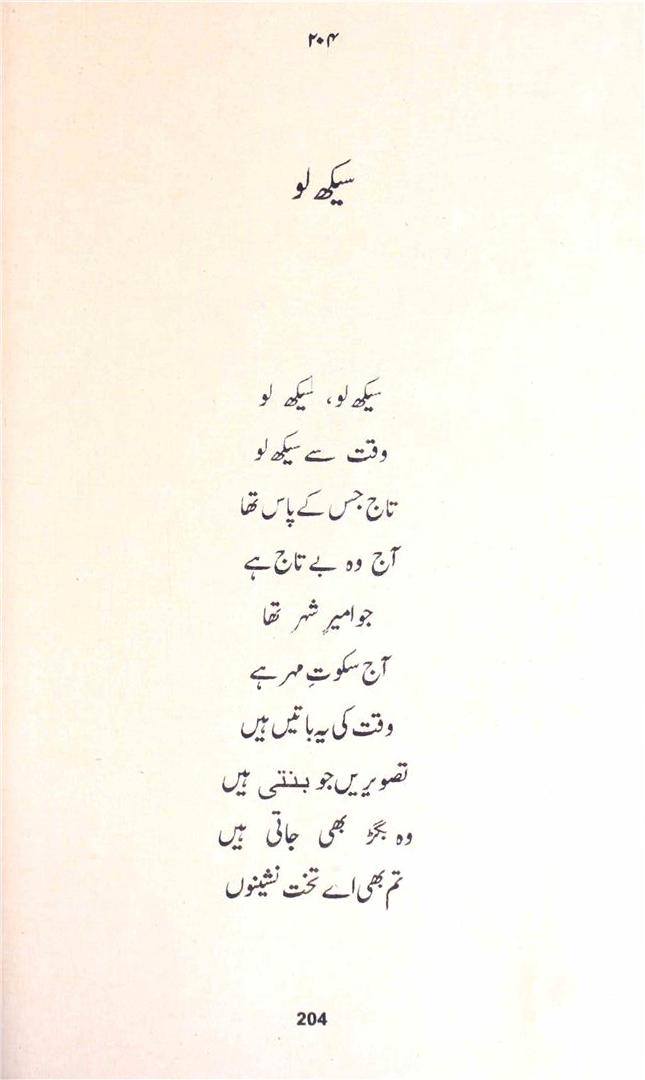 ۲۰۴
سیکھ لو
سیکھ لو، سیکھ لو
وقت سے سیکھ لو
تاج جس کے پاس تھا
آج وہ بے تاج ہے
جو امیرِ شہر تھا
آج سکوتِ مہر ہے
وقت کی یہ باتیں ہیں
تصویریں جو بنتی ہیں
وہ بگڑ بھی جاتی ہیں
تم بھی اے تخت نشینوں
204